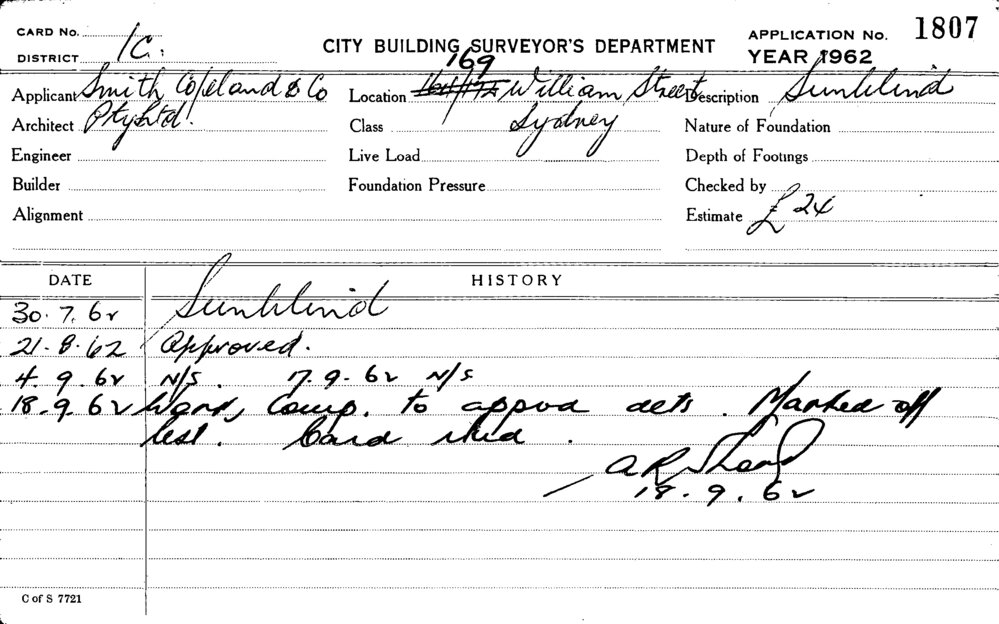 CARD No.
DISTRICT 1C.
CITY BUILDING SURVEYOR'S DEPARTMENT
APPLICATION No. 1807
YEAR 1962
169
Applicant Smith Copeland & Co
Location William Street
Description Sunblind
Architect Pty Ltd.
Class Sydney
Nature of Foundation
Engineer
Live Load
Depth of Footings
Builder
Foundation Pressure
Checked by
Alignment
Estimate £ 24
DATE HISTORY
30.7.62 Sunblind
21.8.62 Approved.
4.9.62 N/S. 17.9.62 N/S
18.9.62 Work, Comp. to appvd dets. Marked off
list. Card
A R
18.9.62
C of S 7721